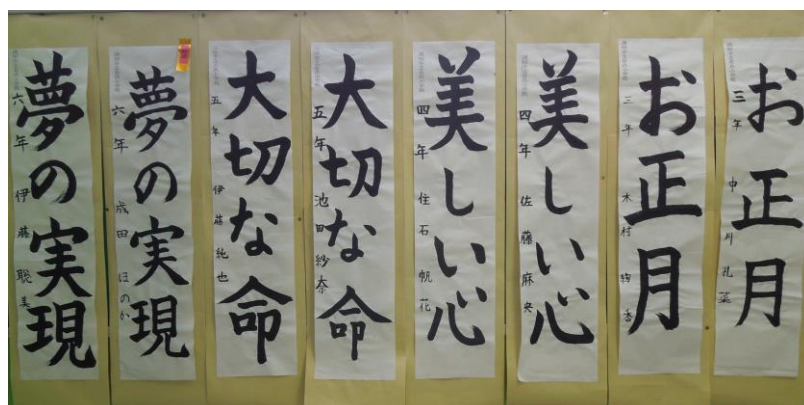 お正月
三年 中川礼菜
お正月
三年 木村
美しい心
四年 佐藤麻央
美しい心
四年 住石帆花
大切な命
五年 池田紗奈
大切な命
五年 伊藤純也
夢の実現
六年 成田ほのか
夢の実現
六年 伊藤聡美